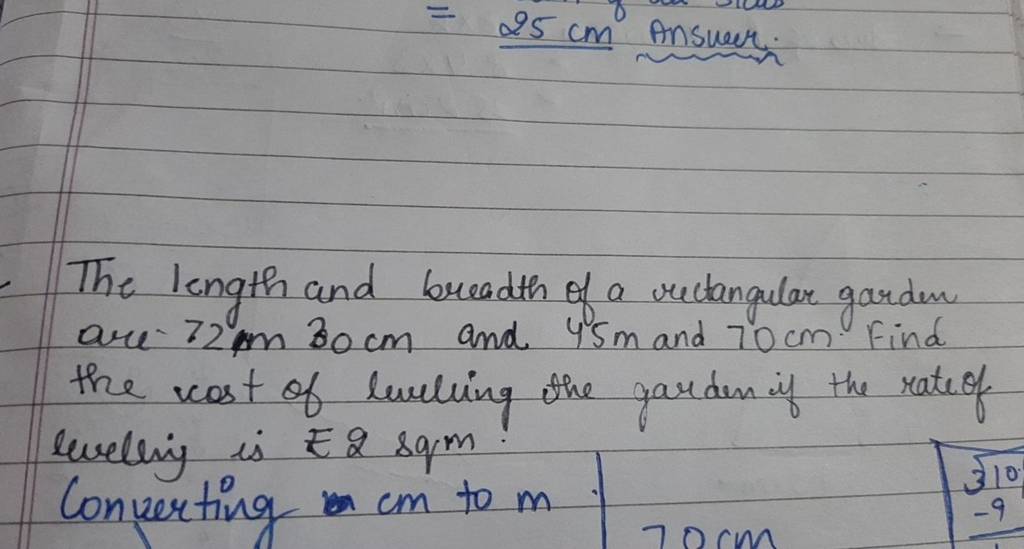 =
25 cm Answer.
The length and breadth of a rectangular garden
are 72 m 30 cm and 45m and 70 cm Find
the cost of levelling the garden if the rate of
levellig is ₹2 sqm.
Converting cm to m
70 cm
3 10
-9